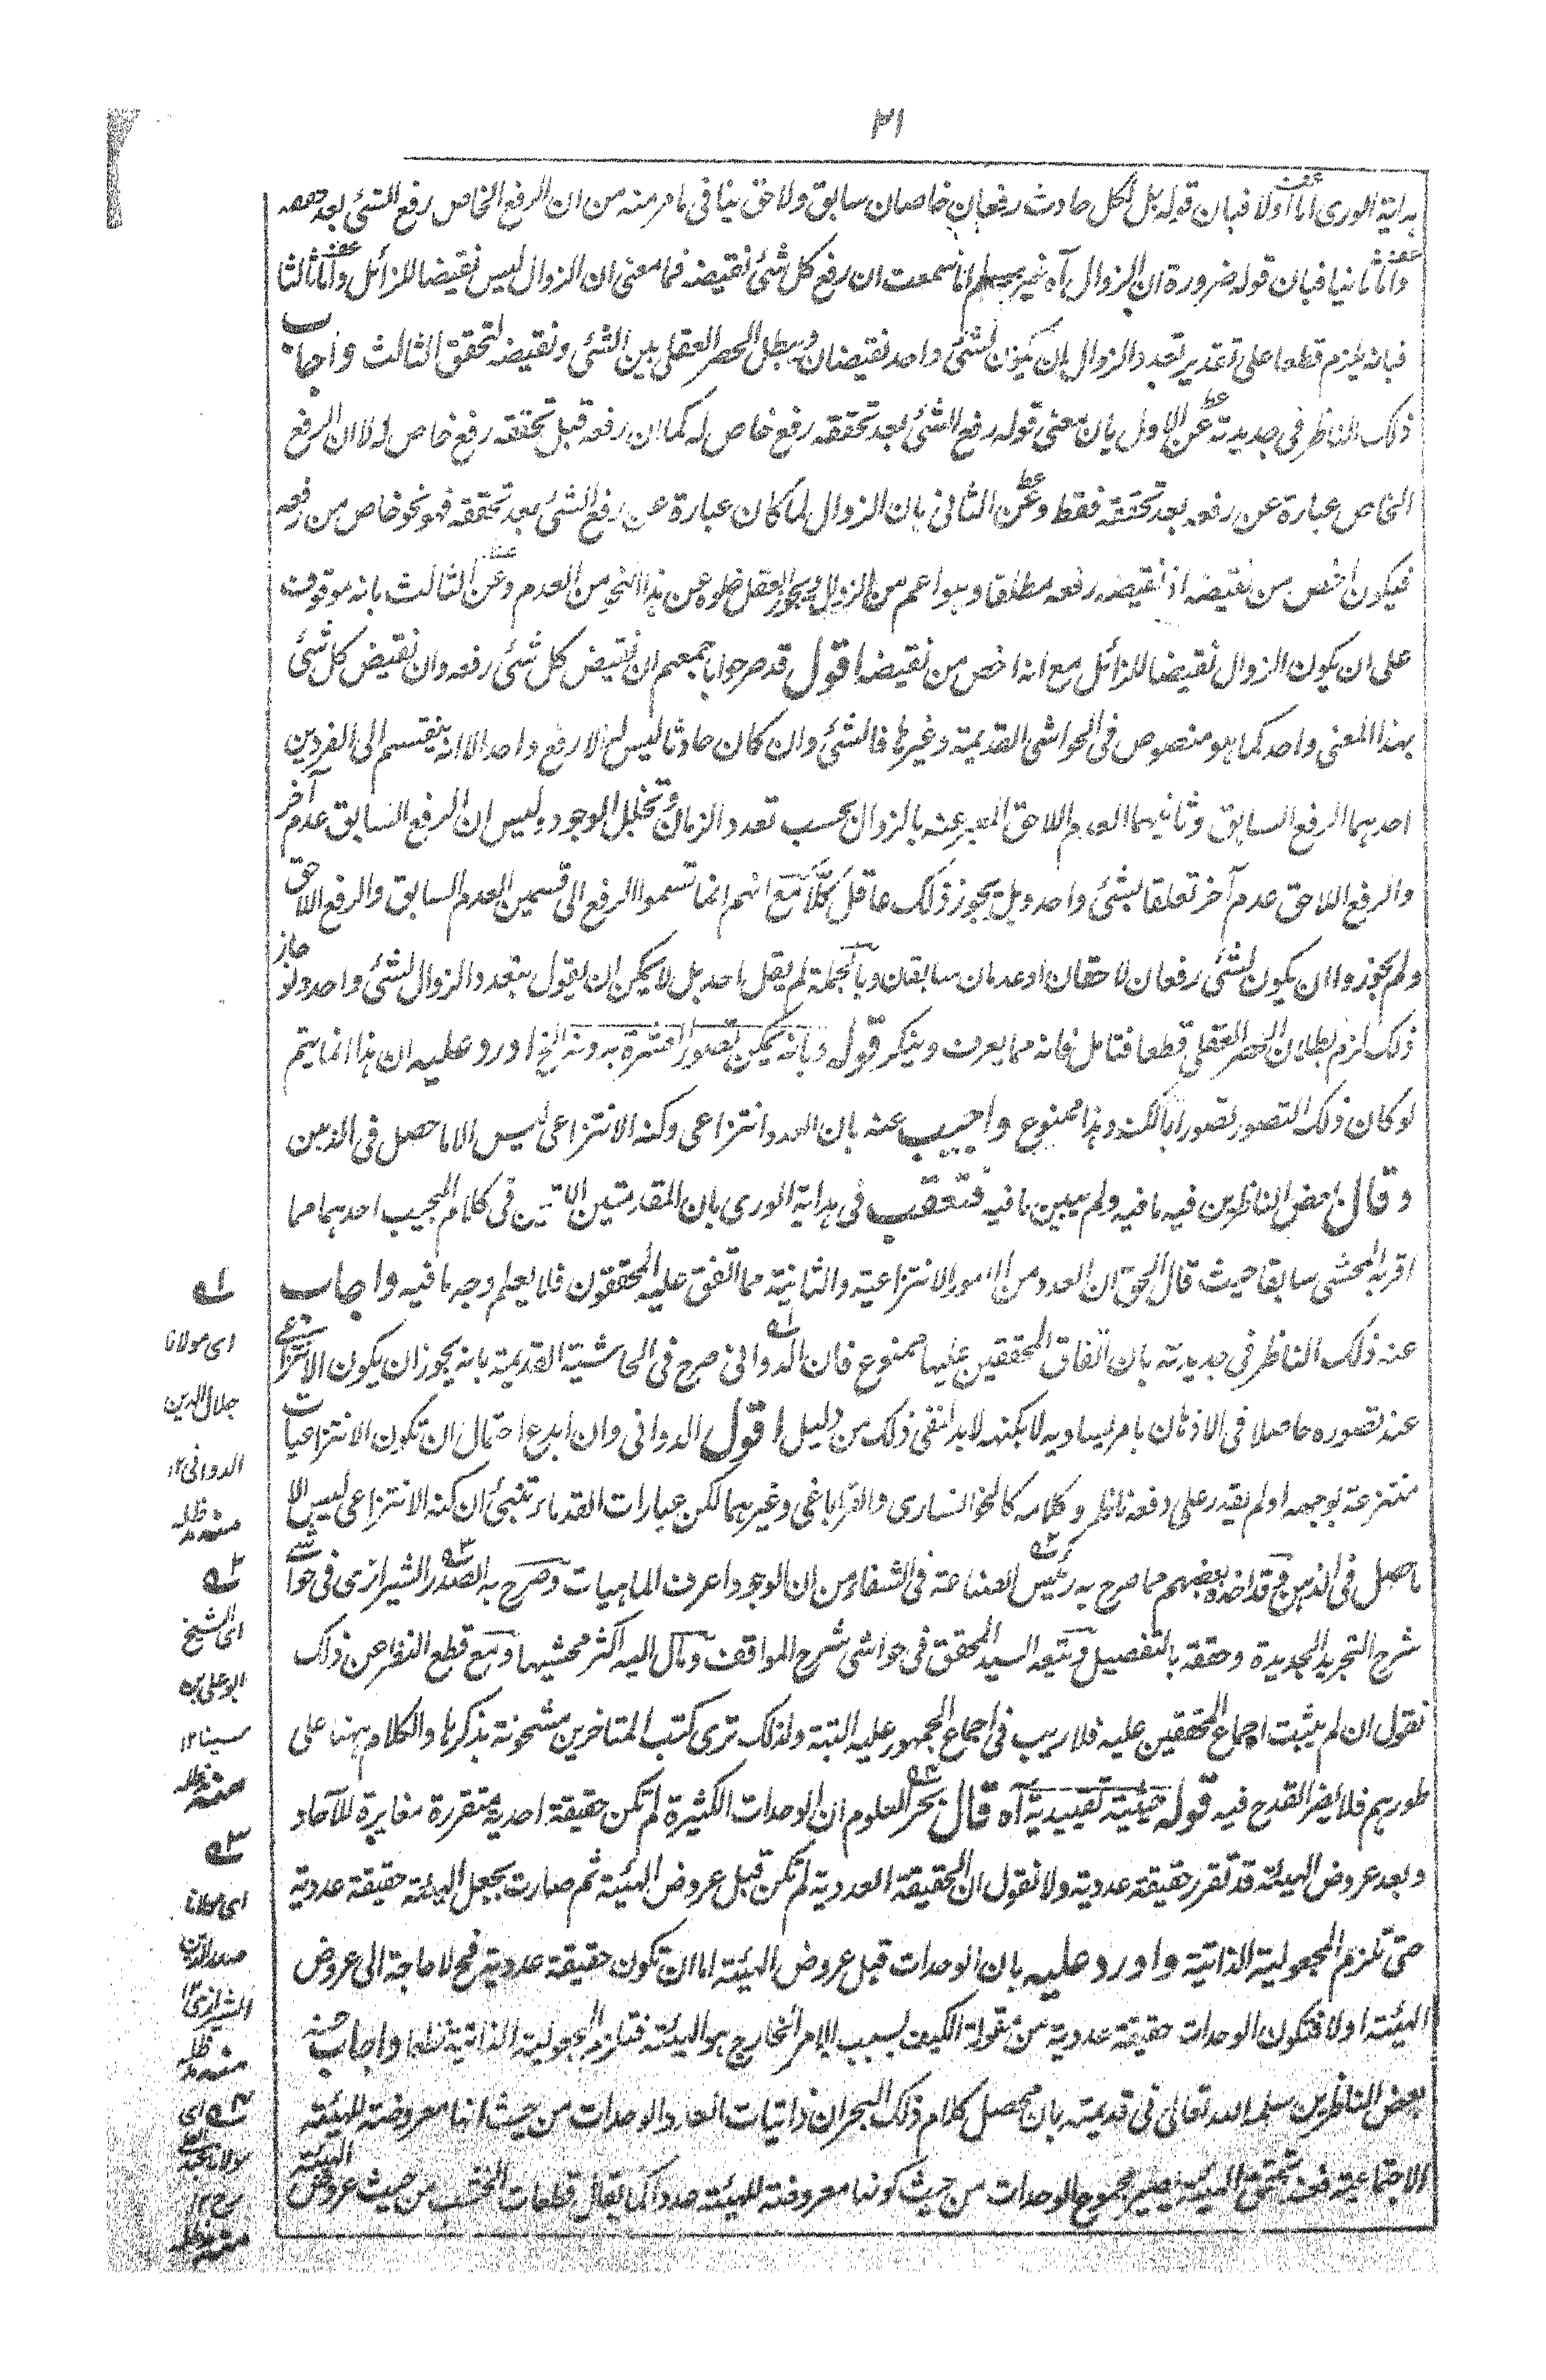 ٢١
هداية الورى اما اولا فبان قوله بل لكل حادث رفعان خاصان سابق ولاحق ينافى ما مر منه من ان الرفع الخاص رفع الشئ بعد تحققه
واما ثانيا فبان قوله ضرورة ان الزوال آه غير مسلم انا سمعت ان رفع كل شئ نقيضه فما معنى ان الزوال ليس نقيضا للزائل واما ثالثا
فبانه يلزم قطعا على تقدير تعدد الزوال ان يكون لشئ واحد نقيضان ويبطل الحصر العقلى بين الشئ ونقيضه لتحقق الثالث واجاب
ذلك الناظر فى جديدته عن الاول بان معنى قوله رفع الشئ بعد تحققه رفع خاص له كما ان رفعه قبل تحققه رفع خاص له لا ان الرفع
الخاص عبارة عن رفعه بعد تحققه فقط وعن الثانى بان الزوال لما كان عبارة عن رفع الشئ بعد تحققه فهو نحو خاص من رفعه
فيكون اخص من نقيضه اذ نقيضه رفعه مطلقا وهو اعم من الزوال ويجوز العقل خلوه عن هذا النحو من العدم وعن الثالث بانه موقوف
على ان يكون الزوال نقيضا للزائل مع انه اخص من نقيضه اقول قد صرحوا باجمعهم ان نقيض كل شئ رفعه وان نقيض كل شئ
بهذا المعنى واحد كما هو منصوص فى الحواشى القديمة وغيرها فالشئ وان كان حادثا ليس له الا رفع واحد الا انه ينقسم الى الفردين
احدهما الرفع السابق وثانيهما العدم اللاحق المعبر عنه بالزوال بحسب تعدد الزمان وتخلل الوجود وليس ان الرفع السابق عدم آخر
والرفع اللاحق عدم آخر تعلقا بشئ واحد وهل يجوز ذلك عاقل كلا مع انهم انما قسموا الرفع الى قسمين العدم السابق والرفع اللاحق
ولم يجوزوا ان يكون لشئ رفعان لاحقان او عدمان سابقان وبالجملة لم يقل احد بل لا يمكن ان يقول بتعدد الزوال لشئ واحد ولو جاز
ذلك لزم بطلان الحصر العقلى قطعا فتامل فانه مما يعرف وينكر قوله وبانه يمكن تصور العشرة بدونه الخ اورد عليه ان هذا انما يتم
لو كان ذلك التصور تصورا بالكنه وهذا ممنوع واجيب عنه بان العدد انتزاعى وكنه الانتزاعى ليس الا ما حصل فى الذهن
وقال بعض الناظرين فيه ما فيه ولم يبين ما فيه فتعقب فى هداية الورى بان المقدمتين الاتيتين فى كلام المجيب احدهما مما
اقر به المحشى سابقا حيث قال الحق ان العدد من الامور الانتزاعية والثانية مما اتفق عليه المحققون فلا يعلم وجه ما فيه واجاب
عنه ذلك الناظر فى جديدته بان اتفاق المحققين عليها ممنوع فان الدوانى صرح فى الحاشية القديمة بانه يجوز ان يكون الانتزاعى
عند تصوره حاصلا فى الاذهان بامر يساويه لا بكنهه لا بد لنفى ذلك من دليل اقول الدوانى وان ابدع احتمال ان تكون الانتزاعيات
منتزعة بوجهه او لم يقدر على دفعه ناظرو كلامه كالخوانسارى والقراباغى وغيرهما لكن عبارات القدماء تنبئ ان كنه الانتزاعى ليس الا
ما حصل فى الذهن وقد اخذه بعضهم مما صرح به رئيس الصناعة فى الشفاء من ان الوجود اعرف الماهيات وصرح به الصدر الشيرازى فى حواشى
شرح التجريد الجديدة وحققه بالتفصيل وتبعه السيد المحقق فى حواشى شرح المواقف ومال اليه اكثر محشيها ومع قطع النظر عن ذلك
نقول ان لم يثبت اجماع المحققين عليه فلا ريب فى اجماع الجمهور عليه البتة ولذلك ترى كتب المتاخرين مشحونة بذكرها والكلام ههنا على
طورهم فلا يضر القدح فيه قوله حيثية تقييدية آه قال بحر العلوم ان الوحدات الكثيرة لم تكن حقيقة احدية متقررة مغايرة للآحاد
وبعد عروض الهيئة قد تقرر حقيقة عددية ولا نقول ان الحقيقة العددية لم تكن قبل عروض الهيئة ثم صارت بجعل الهيئة حقيقة عددية
حتى تلزم المجعولية الذاتية واورد عليه بان الوحدات قبل عروض الهيئة اما ان تكون حقيقة عددية فح لا حاجة الى عروض
الهيئة او لا فتكون الوحدات حقيقة عددية من مقولة الكيف بسبب الامر الخارج هو الهيئة فتلزم المجعولية الذاتية قطعا واجاب عنه
بعض الناظرين سلمه الله تعالى فى قديمته بان محصل كلام ذلك البحر ان ذاتيات العدد الوحدات من حيث انها معروضة للهيئة
الاجتماعية فعند تحقق الهيئة يصير مجموع الوحدات من حيث كونها معروضة للهيئة عددا كما يقال قطعات الخشب من حيث عروض الهيئة
ا؎
اى مولانا
جلال الدين
الدوانى ١٢
منه مد ظله
٢؎
اى الشيخ
ابو على بن
سينا ١٢
منه مد ظله
٣؎
اى مولانا
صدر الدين
الشيرازى ١٢
منه مد ظله
٤؎ اى
مولانا عبد العلى
١٢
منه مد ظله